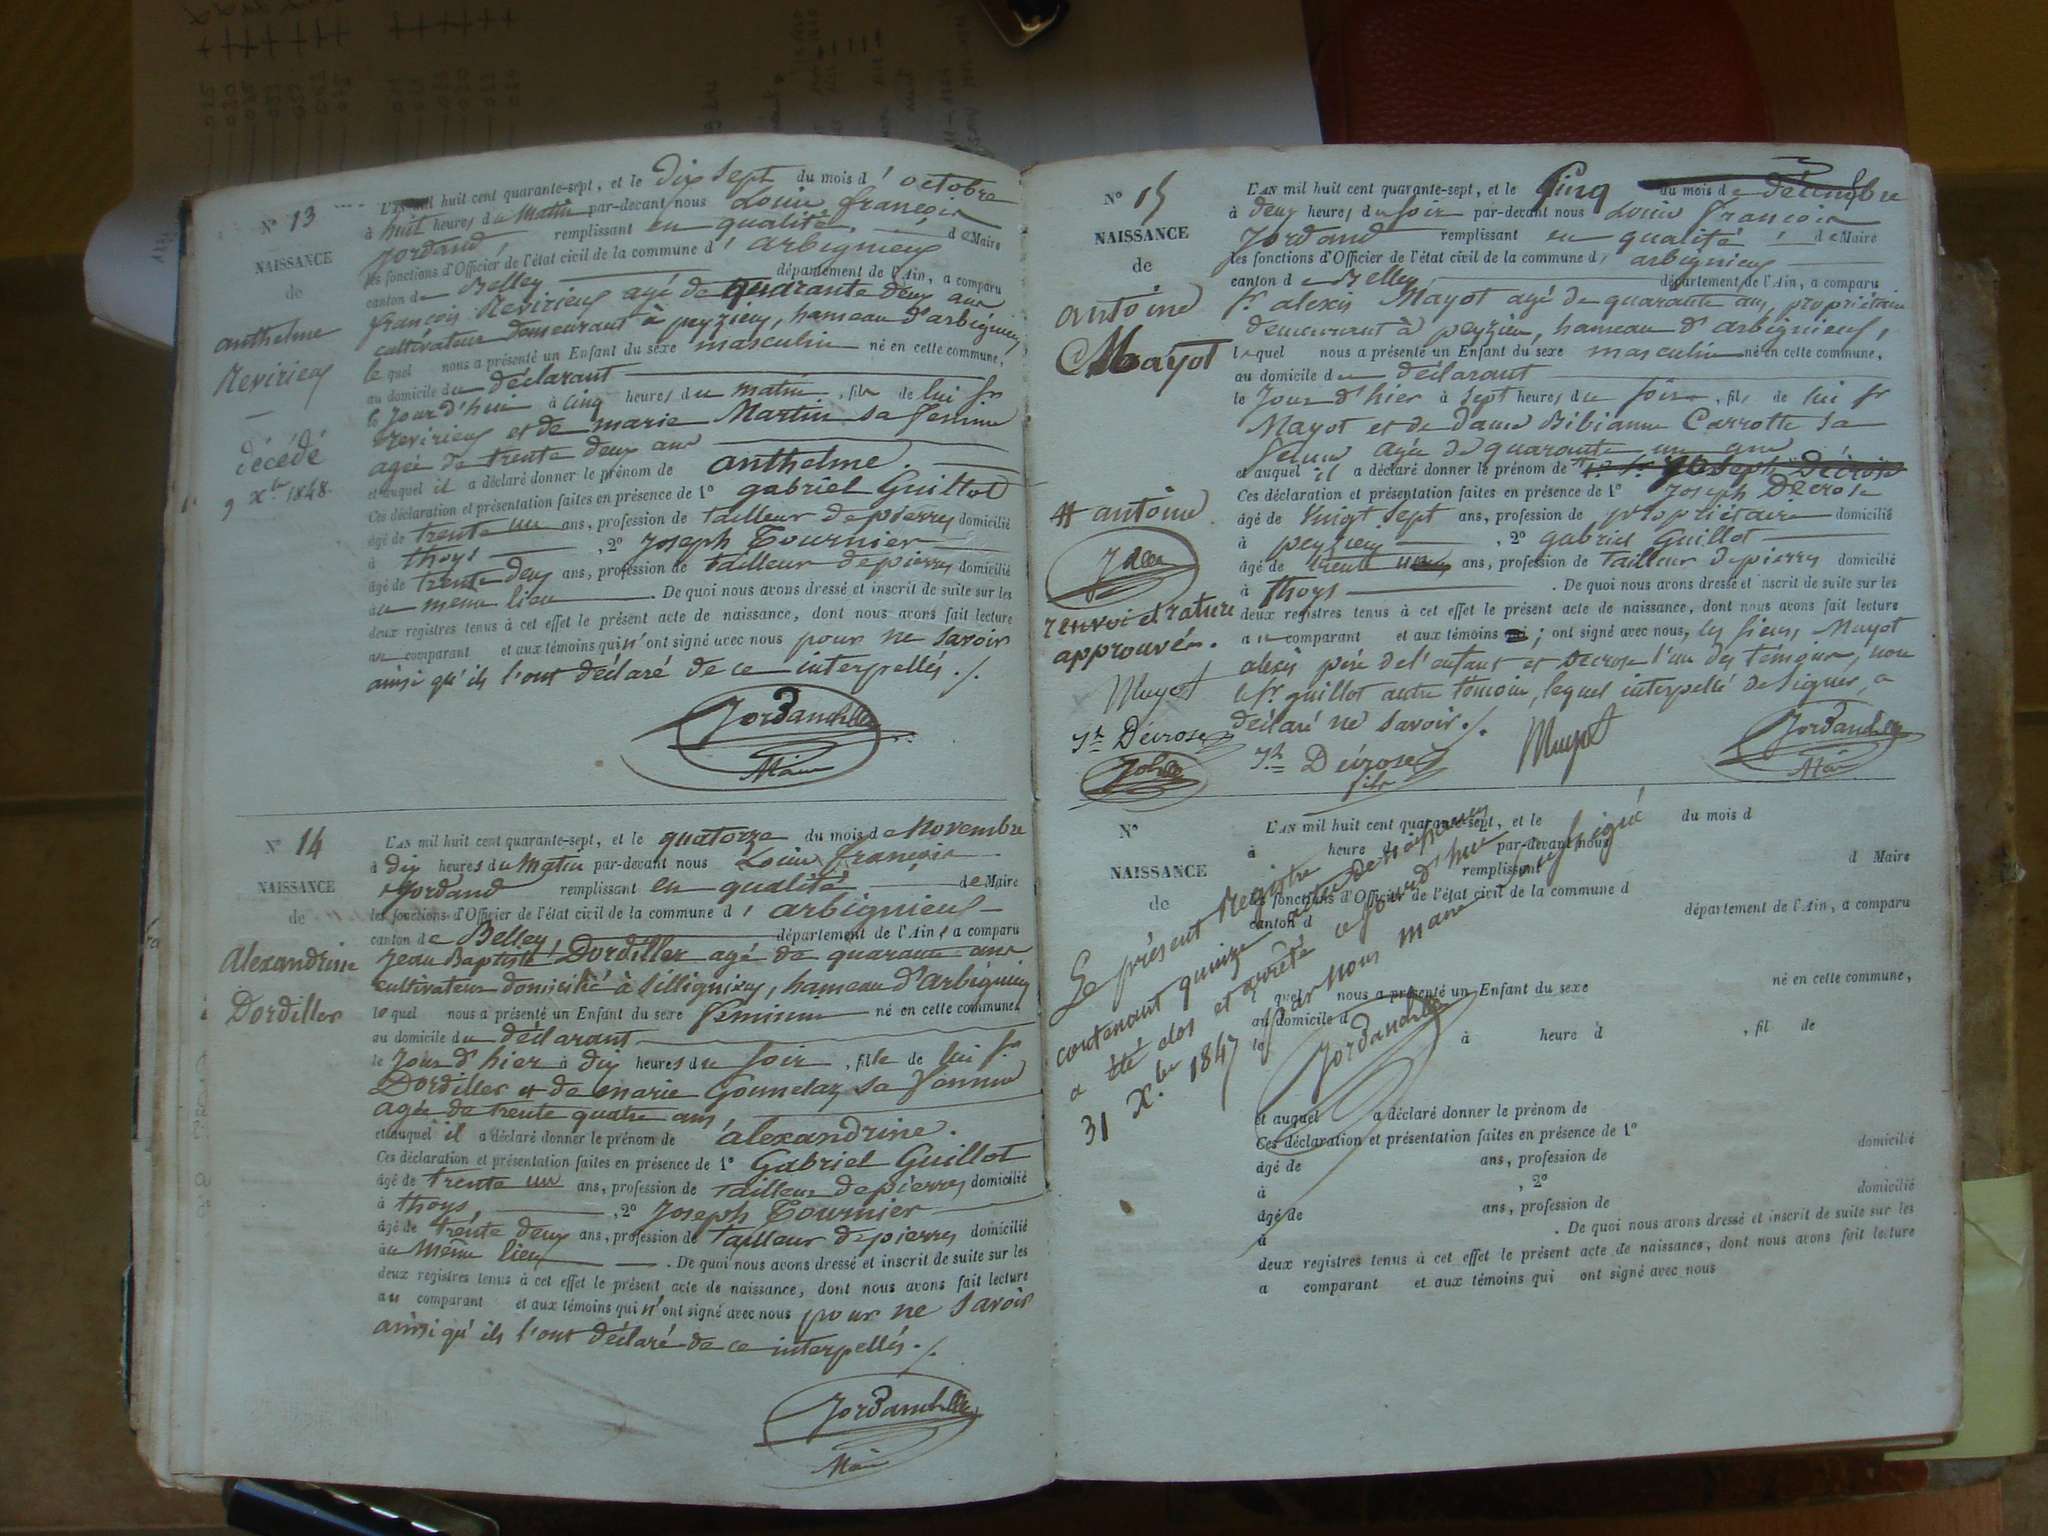 N° 13
NAISSANCE
de
anthelme
Revirieux
décédé
9 Xbre 1848.
L'AN mil huit cent quarante-sept, et le Dix Sept du mois d'octobre
à huit heures du Matin par-devant nous Louis françois
Jordand, remplissant en qualité, de Maire
les fonctions d'Officier de l'état civil de la commune d'arbignieux
canton de Belley département de l'Ain, a comparu
françois Revirieux agé de quarante deux ans
cultivateur demeurant à peyzieux, hameau d'arbignieux,
lequel nous a présenté un Enfant du sexe masculin né en cette commune,
au domicile du déclarant
le jour d'hui à cinq heures du matin, fils de lui sr
Revirieux et de marie Martin sa femme
agée de trente deux ans
et auquel il a déclaré donner le prénom de anthelme.
Ces déclaration et présentation faites en présence de 1° gabriel Guillot
âgé de trente un ans, profession de tailleur de pierres domicilié
à thoys, 2° Joseph Tournier
âgé de trente deux ans, profession de tailleur de pierres domicilié
au meme lieu. De quoi nous avons dressé et inscrit de suite sur les
deux registres tenus à cet effet le présent acte de naissance, dont nous avons fait lecture
au comparant et aux témoins qui n'ont signé avec nous pour ne savoir
ainsi qu'ils l'ont déclaré de ce interpellés ./.
Maire
N° 14
NAISSANCE
de
Alexandrine
Dordilles
L'AN mil huit cent quarante-sept, et le quatorze du mois de Novembre
à dix heures du Matin par-devant nous Louis françois
Jordand remplissant en qualité de Maire
les fonctions d'Officier de l'état civil de la commune d'arbignieux
canton de Belley département de l'Ain, a comparu
Jean Baptiste Dordilles agé de quarante ans
cultivateur domicilié à Sillignieux, hameau d'arbignieux
lequel nous a présenté un Enfant du sexe féminin né en cette commune,
au domicile du déclarant
le jour d'hier à dix heures du soir, fille de lui sr
Dordilles et de marie sa femme
agée de trente quatre ans,
et auquel il a déclaré donner le prénom de alexandrine.
Ces déclaration et présentation faites en présence de 1° Gabriel Guillot
âgé de trente un ans, profession de tailleur de pierres domicilié
à thoys, 2° Joseph Tournier
âgé de trente deux ans, profession de tailleur de pierres domicilié
au même lieu. De quoi nous avons dressé et inscrit de suite sur les
deux registres tenus à cet effet le présent acte de naissance, dont nous avons fait lecture
au comparant et aux témoins qui n'ont signé avec nous pour ne savoir
ainsi qu'ils l'ont déclaré de ce interpellés ./.
Maire
N° 15
NAISSANCE
de
antoine
Mayot
# antoine
renvoi et rature
approuvés.
Mayot
Jh Décrose
L'AN mil huit cent quarante-sept, et le Cinq du mois de décembre
à deux heures du soir par-devant nous Louis françois
Jordand remplissant en qualité, de Maire
les fonctions d'Officier de l'état civil de la commune d'arbignieux
canton de Belley département de l'Ain, a comparu
Sr alexis Mayot agé de quarante ans, propriétaire
demeurant à peyzieu, hameau d'arbignieux,
lequel nous a présenté un Enfant du sexe masculin né en cette commune,
au domicile du déclarant
le jour d'hier à sept heures du soir, fils de lui sr
Mayot et de dame Bibianne Carrotte sa
femme agée de quarante un ans
et auquel il a déclaré donner le prénom de # Joseph Décrose
Ces déclaration et présentation faites en présence de 1° Joseph Décrose
âgé de vingt sept ans, profession de propriétaire domicilié
à peyzieux, 2° gabriel Guillot
âgé de trente un ans, profession de tailleur de pierres domicilié
à thoys. De quoi nous avons dressé et inscrit de suite sur les
deux registres tenus à cet effet le présent acte de naissance, dont nous avons fait lecture
au comparant et aux témoins ; ont signé avec nous, les sieurs Mayot
alexis père de l'enfant et Décrose l'un des témoins, non
le sr guillot autre témoin, lequel interpellé de signer, a
déclaré ne savoir ./.
Jh Décrose fils
Mayot
Maire
N°
NAISSANCE
de
L'AN mil huit cent quarante-sept, et le du mois d
à heure d par-devant nous
remplissant d Maire
les fonctions d'Officier de l'état civil de la commune d
canton d département de l'Ain, a comparu
quel nous a présenté un Enfant du sexe né en cette commune,
au domicile d
le à heure d, fil de
et auquel a déclaré donner le prénom de
Ces déclaration et présentation faites en présence de 1°
âgé de ans, profession de domicilié
à, 2°
âgé de ans, profession de domicilié
à. De quoi nous avons dressé et inscrit de suite sur les
deux registres tenus à cet effet le présent acte de naissance, dont nous avons fait lecture
a comparant et aux témoins qui ont signé avec nous
Le présent Registre
contenant quinze actes de naissances
a été clos et arrêté ce jourd'hui
31 Xbre 1847 par nous maire soussigné